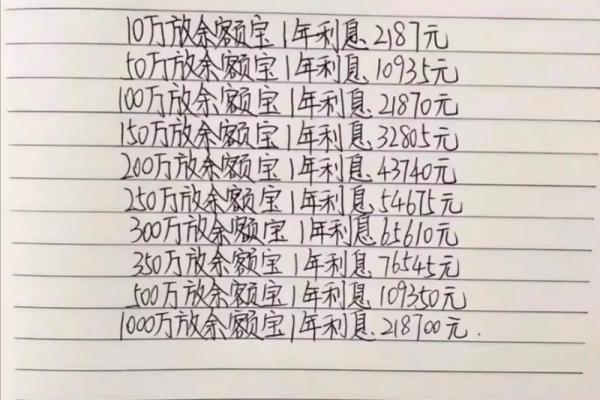 10万放余额宝1年利息2187元
50万放余额宝1年利息10935元
100万放余额宝1年利息21870元
150万放余额宝1年利息32805元
200万放余额宝1年利息43740元
250万放余额宝1年利息54675元
300万放余额宝1年利息65610元
350万放余额宝1年利息76545元
500万放余额宝1年利息109350元
1000万放余额宝1年利息218700元.